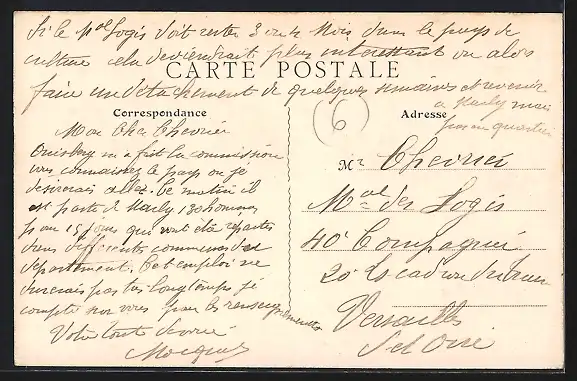 Si le Mal Logis doit rester 3 ou 4 Mois dans le pays de
culture cela deviendrait plus interessant ou alors
CARTE POSTALE
faire un détachement de quelques semaines et revenir
a Marly mais
pas au quartier
Correspondance
Adresse
6
Mon Cher Chevrier
m'a fait la commission
vous connaissez le pays ou je
desirerais allez. Ce matin il
est partie de Marly 130 hommes
pour 15 jours qui vont être répartis
dans differentes communes du
departement. Cet emploi ne
durerais pas très longtemps je
compte sur vous pour les renseignements
Votre tout devoué
Mr Chevrier
Mal des Logis
40e Compagnie
20e Escadron du train
Versailles
S et Oise